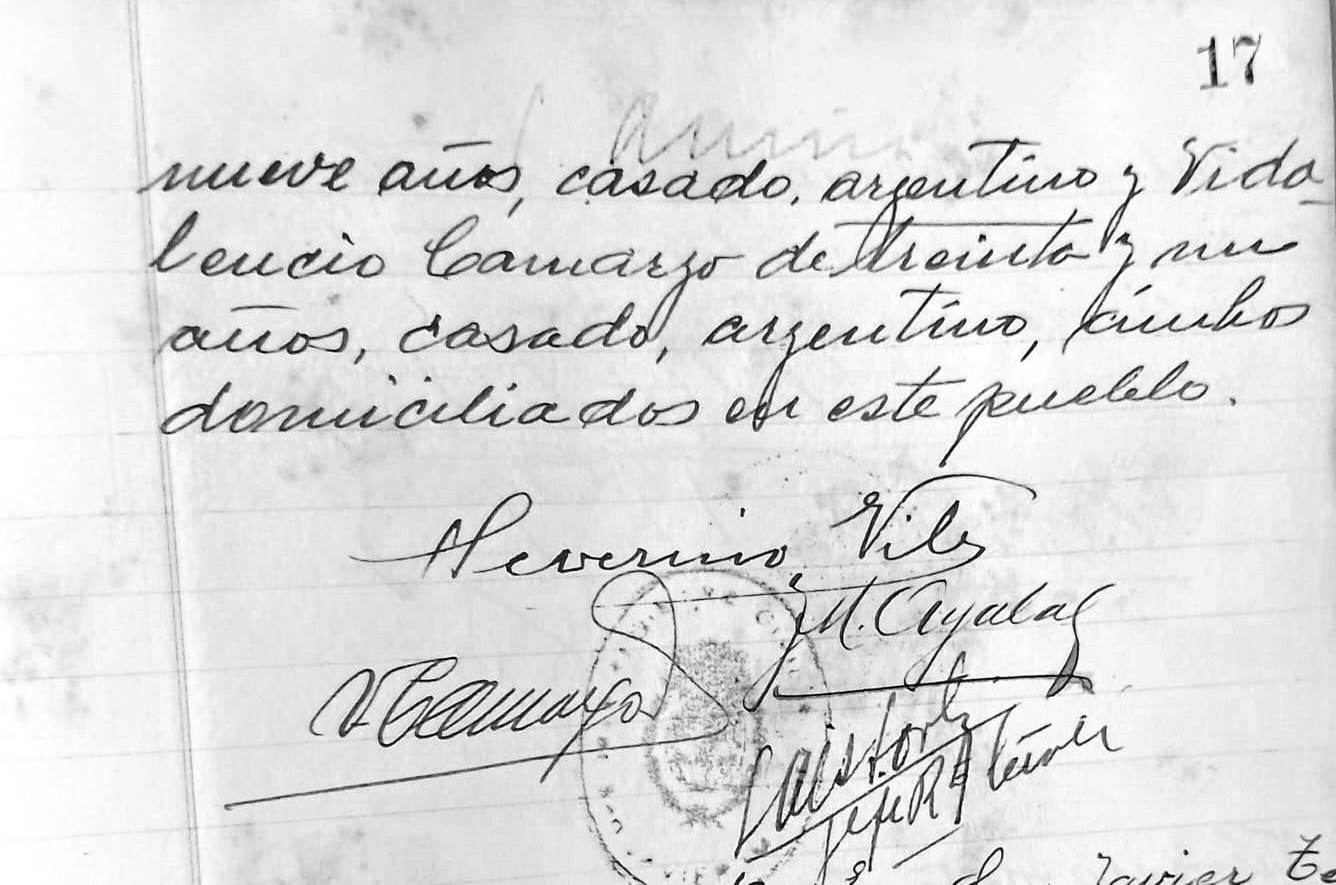 17
nueve años, casado, argentino y Vida-
lencio Camargo de treinta y un
años, casado, argentino, ambos
domiciliados en este pueblo.
Severino Vila
M. Ayala
V Camargo
Luis F. Ortiz
Jefe R
Javier